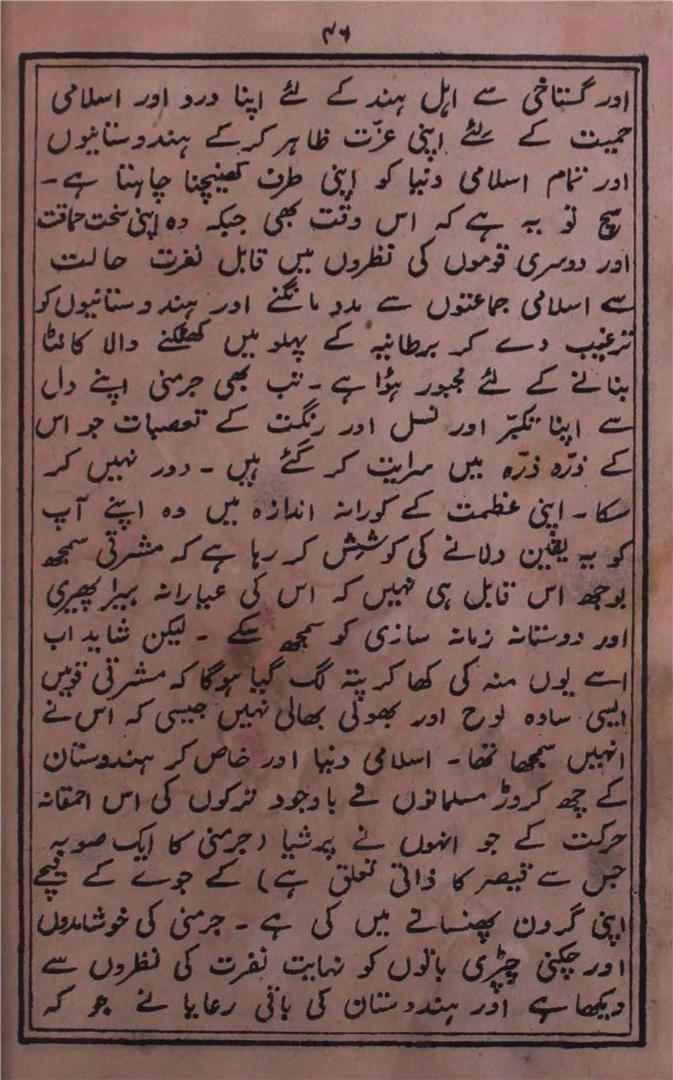 ۴۶
اور گستاخی سے اہل ہند کے لئے اپنا درد اور اسلامی
حمیت کے لئے اپنی عزّت ظاہر کرکے ہندوستانیوں
اور تمام اسلامی دنیا کو اپنی طرف کھینچنا چاہتا ہے۔
سچ تو یہ ہے کہ اس وقت بھی جبکہ وہ اپنی سخت حماقت
اور دوسری قوموں کی نظروں میں قابل نفرت حالت
سے اسلامی جماعتوں سے مدد مانگنے اور ہندوستانیوں کو
ترغیب دے کر برطانیہ کے پہلو میں کھٹکنے والا کانٹا
بنانے کے لئے مجبور ہؤا ہے۔ تب بھی جرمنی اپنے دل
سے اپنا تکبّر اور نسل اور رنگت کے تعصبات جو اس
کے ذرّہ ذرّہ میں سرایت کر گئے ہیں۔ دور نہیں کر
سکا۔ اپنی عظمت کے کورانہ اندازہ میں وہ اپنے آپ
کو یہ یقین دلانے کی کوشش کر رہا ہے کہ مشرقی سمجھ
بوجھ اس قابل ہی نہیں کہ اس کی عیارانہ ہیرا پھیری
اور دوستانہ زمانہ سازی کو سمجھ سکے۔ لیکن شاید اب
اسے یوں منہ کی کھا کر پتہ لگ گیا ہوگا کہ مشرقی قومیں
ایسی سادہ لوح اور بھولی بھالی نہیں جیسی کہ اس نے
انہیں سمجھا تھا۔ اسلامی دنیا اور خاص کر ہندوستان
کے چھ کروڑ مسلمانوں نے باوجود ترکوں کی اس احمقانہ
حرکت کے جو انہوں نے پرشیا (جرمنی کا ایک صوبہ
جس سے قیصر کا ذاتی تعلق ہے) کے جوے کے نیچے
اپنی گردن پھنسانے میں کی ہے۔ جرمنی کی خوشامدوں
اور چکنی چپڑی باتوں کو نہایت نفرت کی نظروں سے
دیکھا ہے اور ہندوستان کی باقی رعایا نے جو کہ